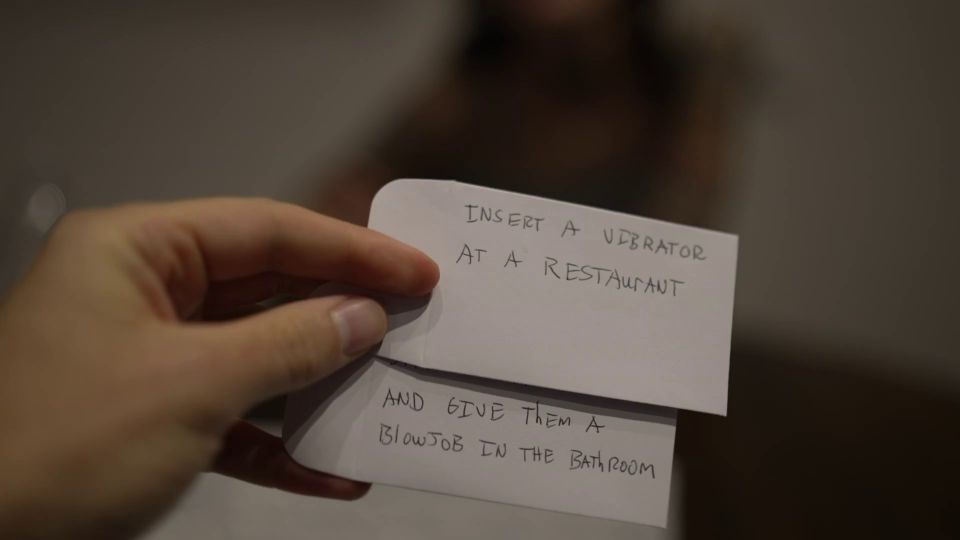 INSERT A VIBRATOR
AT A RESTAURANT
AND GIVE THEM A
BLOWJOB IN THE BATHROOM